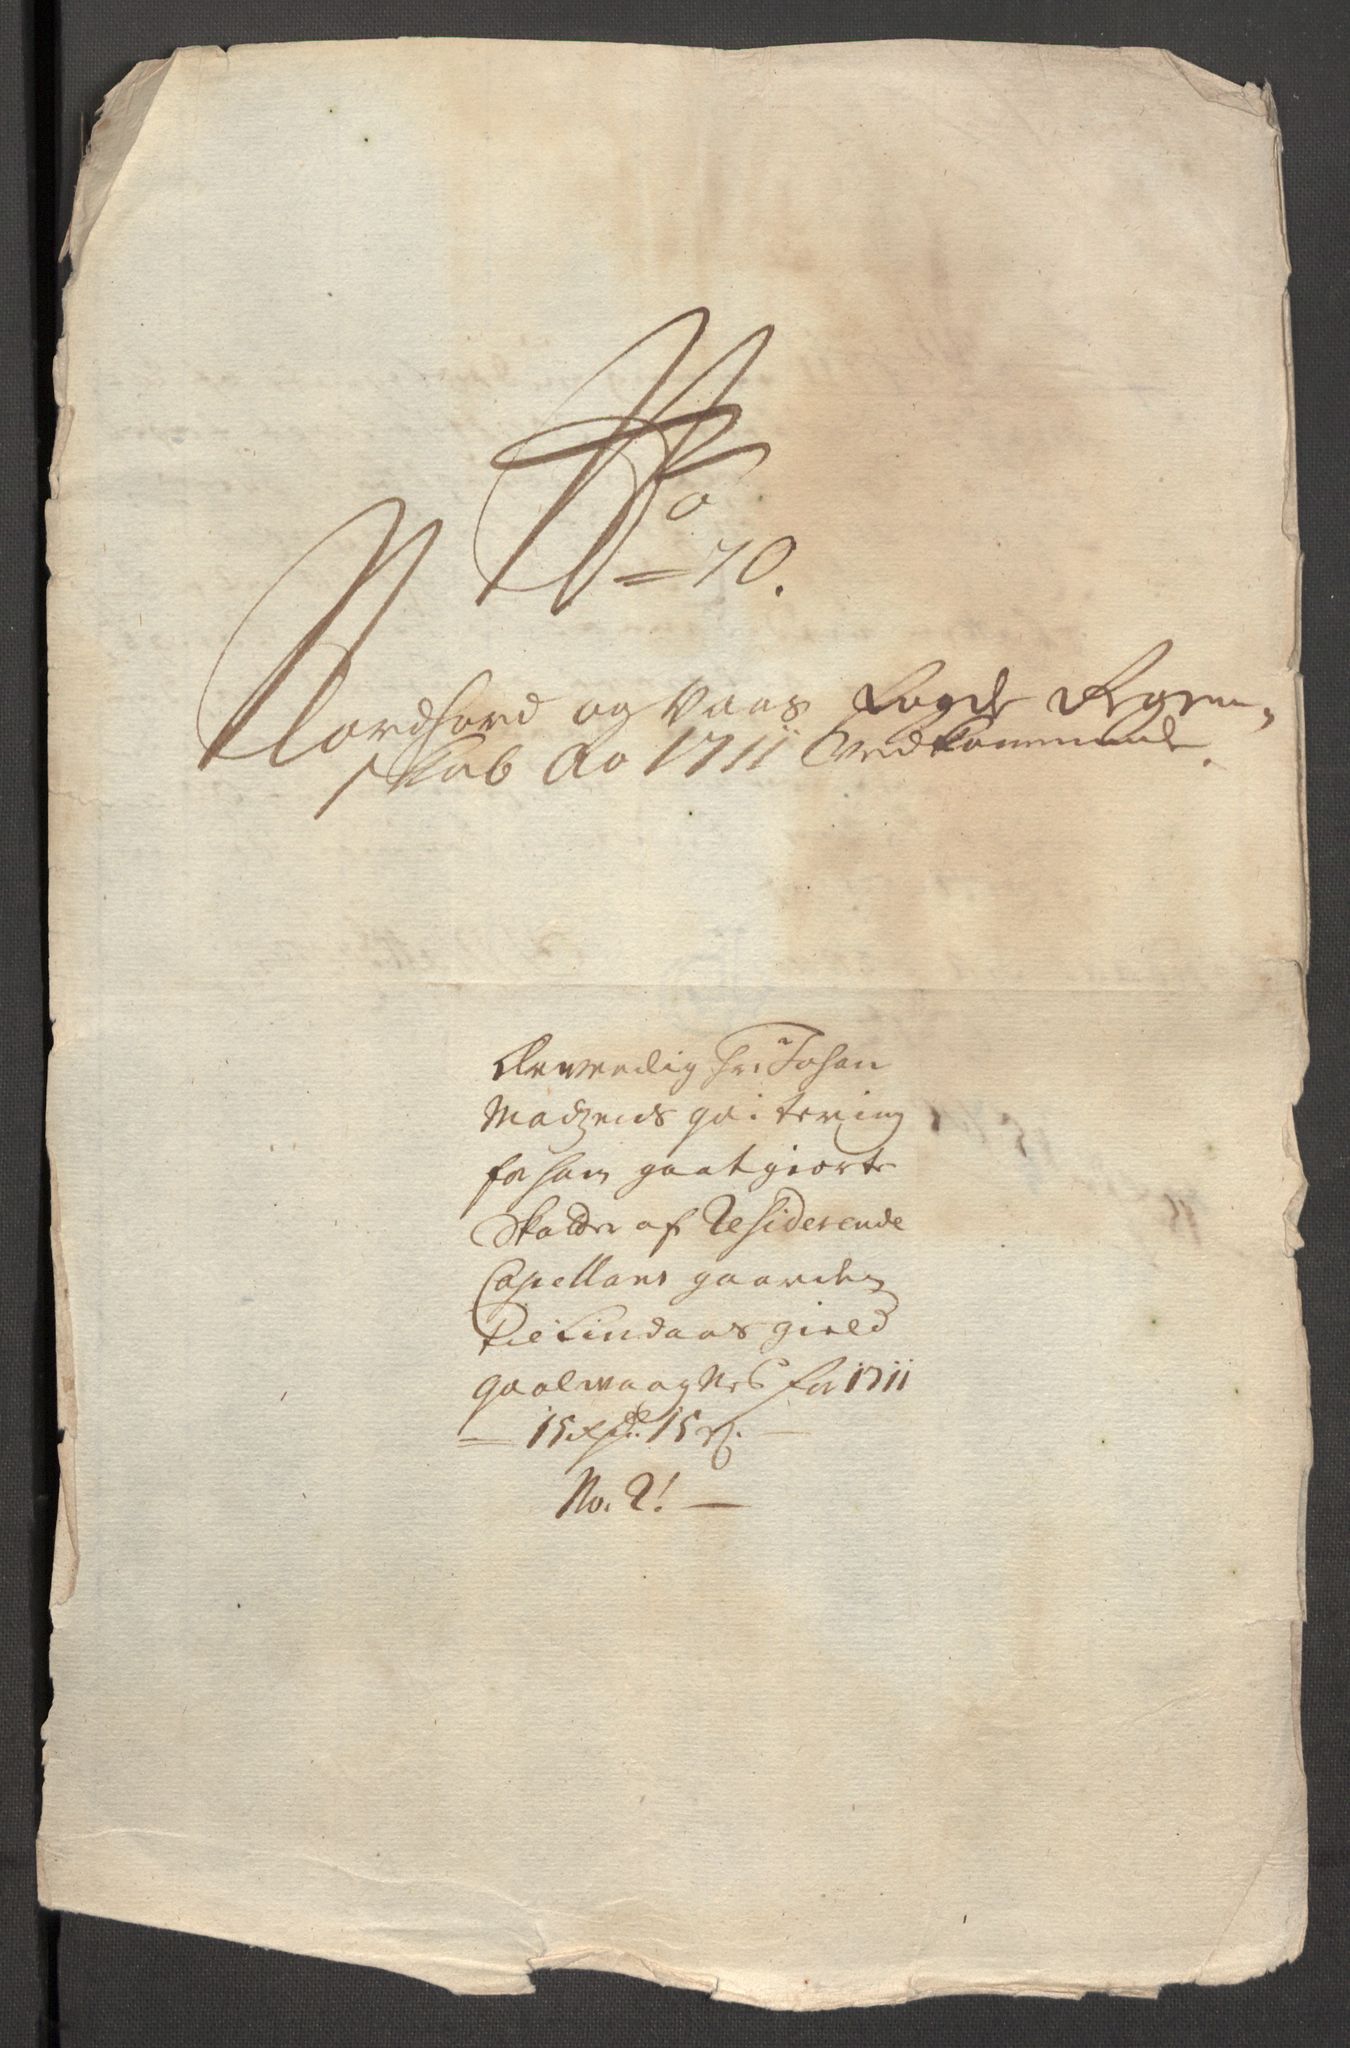 No
70.
Nordhord og Vaas Fogde Regen-
skab Ao 1711 Vedkommende.
Ærværdig Hr. Johan
Madzens qvitering
for ham godtgiorte
Skatter af Residerende
Capellans gaarden
til Lindaas gield
Qvalvaagnes for 1711
15 rdr. 15 s.
No. 2! —